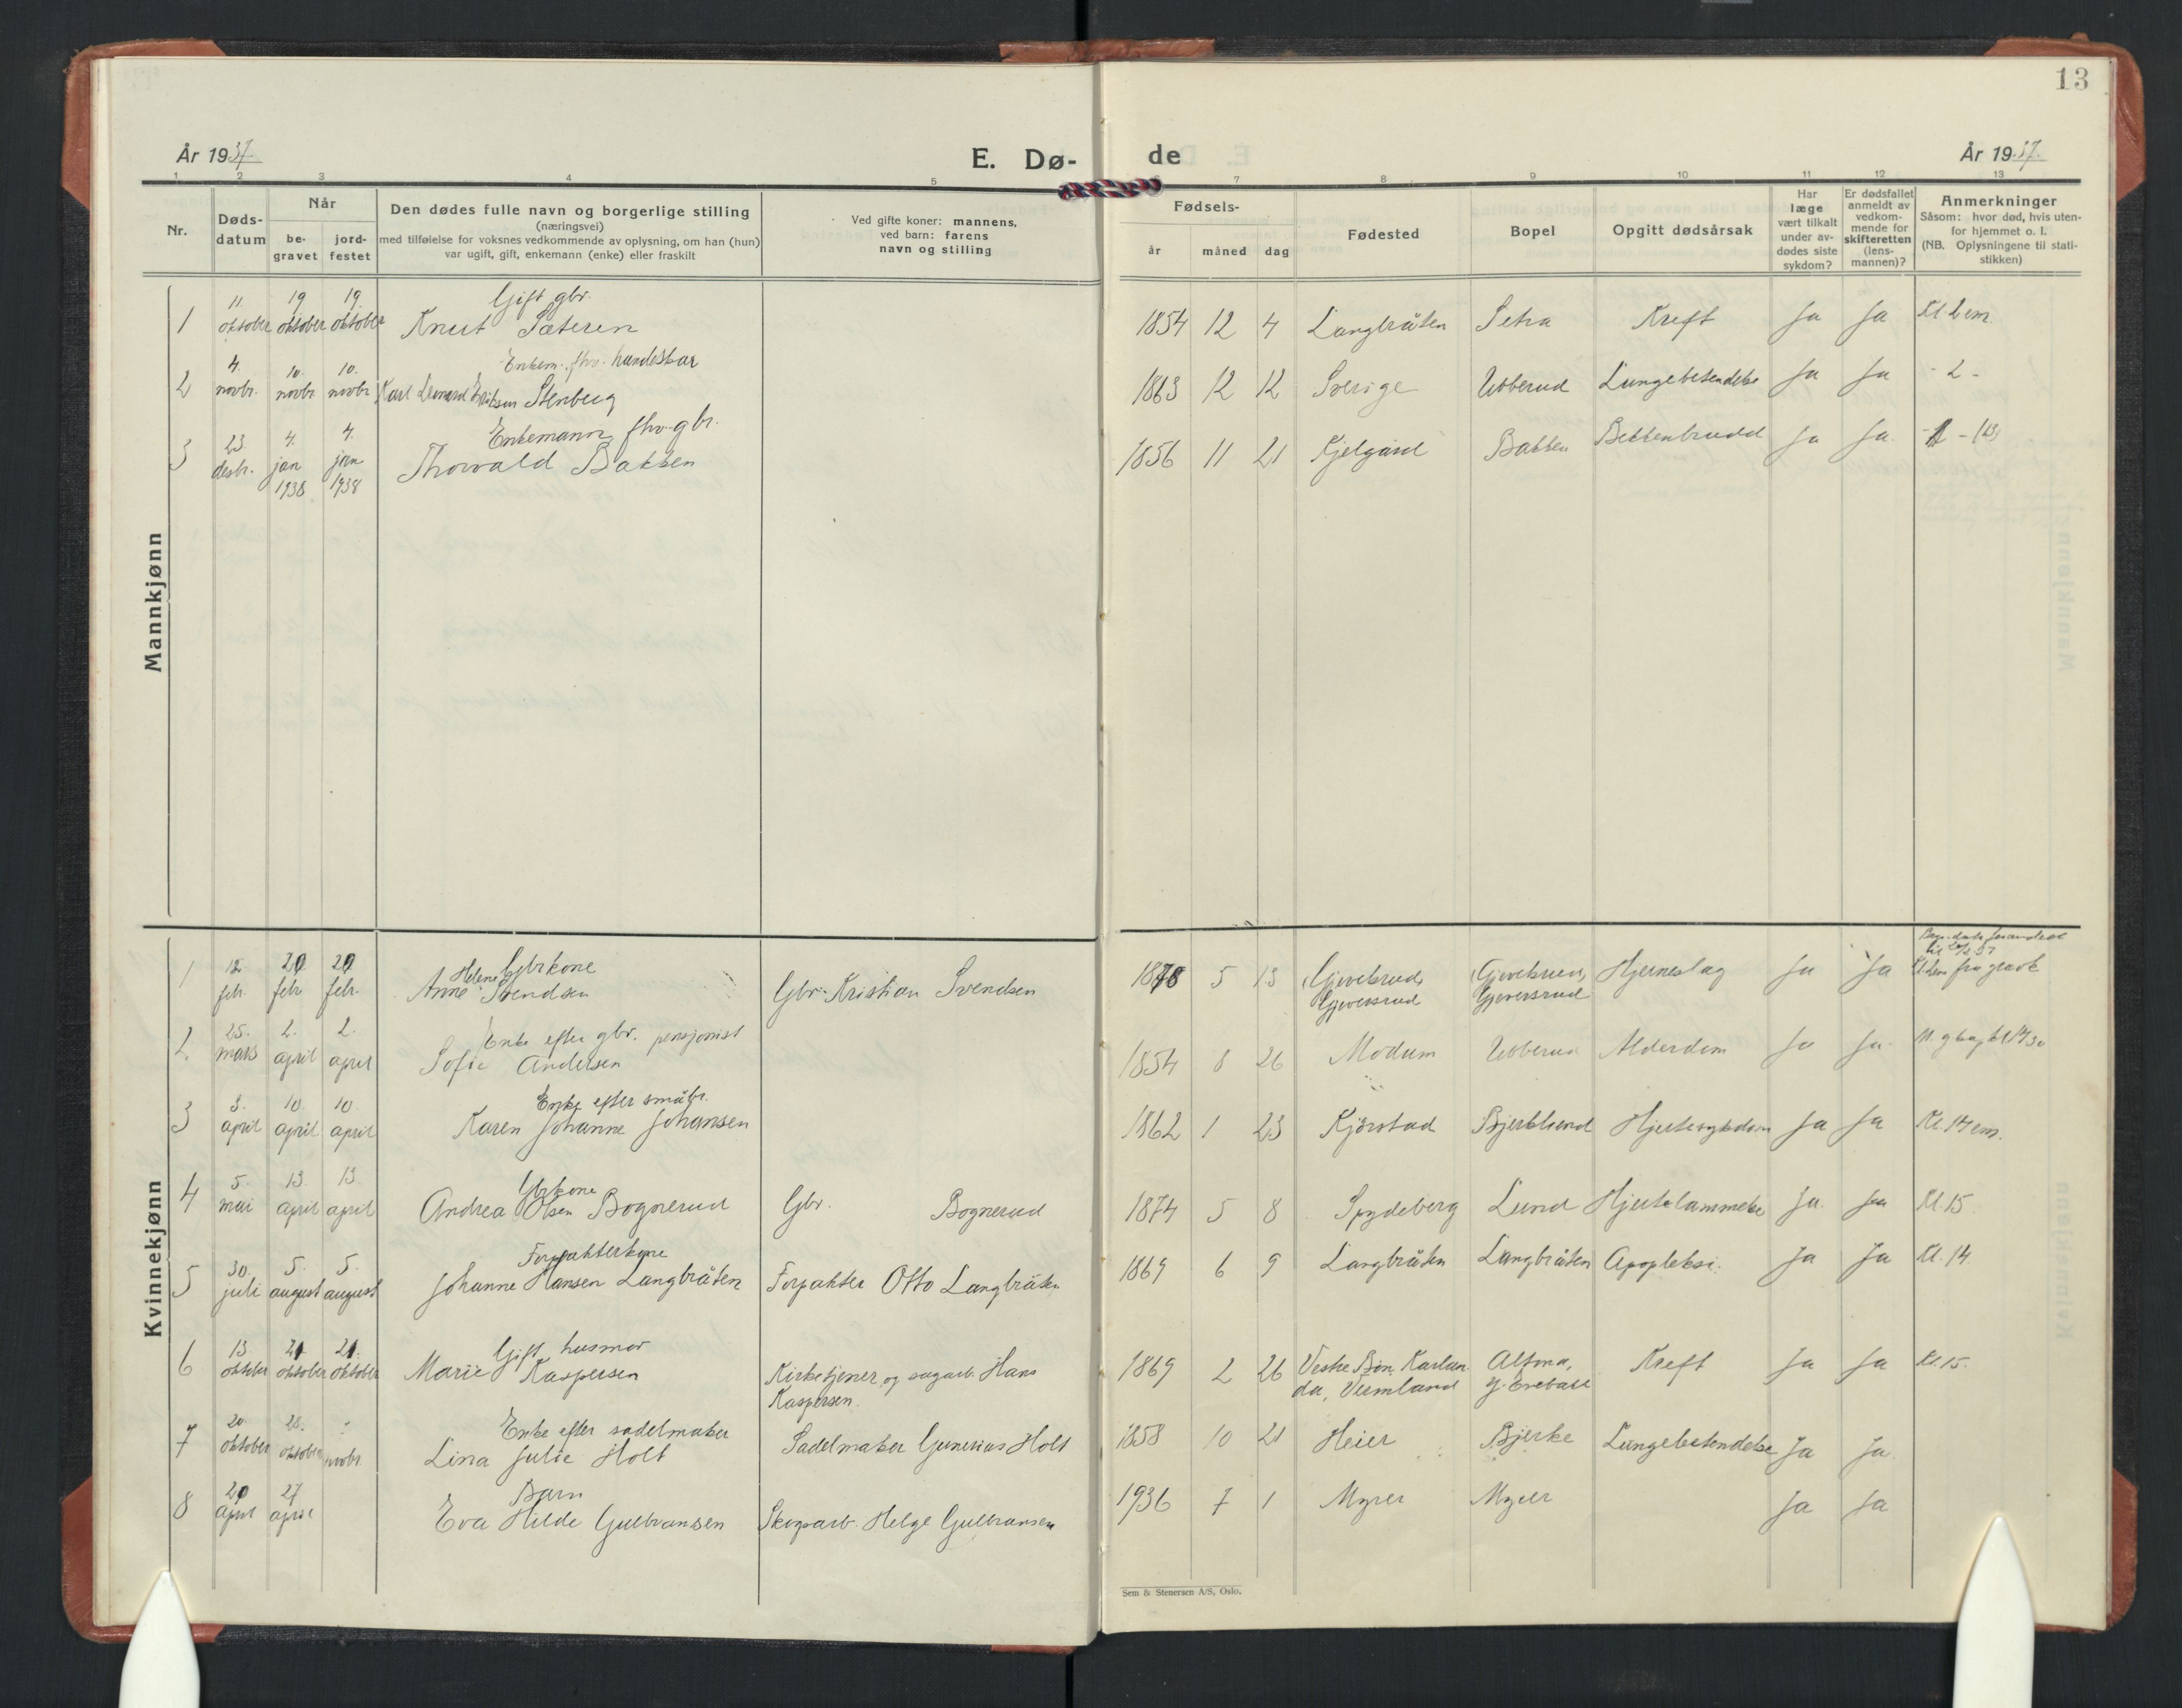 13
År 1937
E. Dø-
de
År 1937.
1 2 3 4 5 6 7 8 9 10 11 12 13
Nr.
Døds-
datum
Når
be-
gravet
jord-
festet
Den dødes fulle navn og borgerlige stilling
(næringsvei)
med tilføielse for voksnes vedkommende av oplysning, om han (hun)
var ugift, gift, enkemann (enke) eller fraskilt
Ved gifte koner: mannens,
ved barn: farens
navn og stilling
Fødsels-
år
måned
dag
Fødested
Bopel
Opgitt dødsårsak
Har
læge
vært tilkalt
under av-
dødes siste
sykdom?
Er dødsfallet
anmeldt av
vedkom-
mende for
skifteretten
(lens-
mannen)?
Anmerkninger
Såsom: hvor død, hvis uten-
for hjemmet o. l.
(NB. Oplysningene til stati-
stikken)
Mannkjønn
11. 19 19. Gift gbr.
1 oktober oktober oktober Knut Sæteren 1854 12 4 Langbråten Setra Kreft Ja Ja Kl. 2 em.
4. 10. 10. Enkem. fhv.
2 novbr. novbr. novbr. Karl Leonard Eriksen Stenberg 1863 12 12 Sverige Ubberud Lungebetendelse Ja Ja - 2 -
23. 4. 4. Enkemann fhv. gbr.
3 desbr. jan jan Thorvald Bakken 1856 11 21 Kjelgård Bakken Bekkenbrudd Ja Ja
1938 1938
Kvinnekjønn
12 20 20 Helene Gbrkone
1 febr. febr. febr. Anne Svendsen Gbr. Kristian Svendsen 1878 5 13 (Gjevelsrud) (Gjevelsrud) Hjerneslag Ja Ja
Gjeversrud Gjeversrud
25. 2. 2. Enke efter gbr. pensjonist
2. mars april april Sofie Andersen 1854 8 26 Modum Ubberud Alderdom Ja Ja
3. 10. 10. Enke efter småbr.
3 april april april Karen Johanne Johansen 1862 1 23 Kjörstad Bjerklund Hjertesykdom Ja Ja Kl. 14 em.
5. 13. 13. Gbrkone
4 mai april april Andrea Olsen Bognerud Gbr. Bognerud 1874 5 8 Spydeberg Lund Hjertelammelse Ja. Ja Kl. 15.
30. 5. 5. Forpakterkone
5 juli august august Johanne Hansen Langbråten Forpakter Otto Langbråten 1869 6 9 Langbråten Langbråten Apopleksi. Ja Ja Kl. 14
13 21 21. Gift husmor
6 oktober oktober oktober Marie Kaspersen Kirketjener og sagarb. Hans 1869 2 26 Kreft Ja Ja Kl. 15.
Kaspersen. da, Vermland
20 28. Enke efter sadelmaker
7 oktober oktober novbr. Lina Julie Holt Sadelmaker Gunerius Holt 1858 10 21 Heier Bjerke Lungebetendelse Ja Ja
20 27 Barn
8 april april Eva Hilde Gulbransen Skogsarb. Helge Gulbransen 1936 7 1 Myrer Myrer Ja Ja
Sem & Stenersen A/S, Oslo.